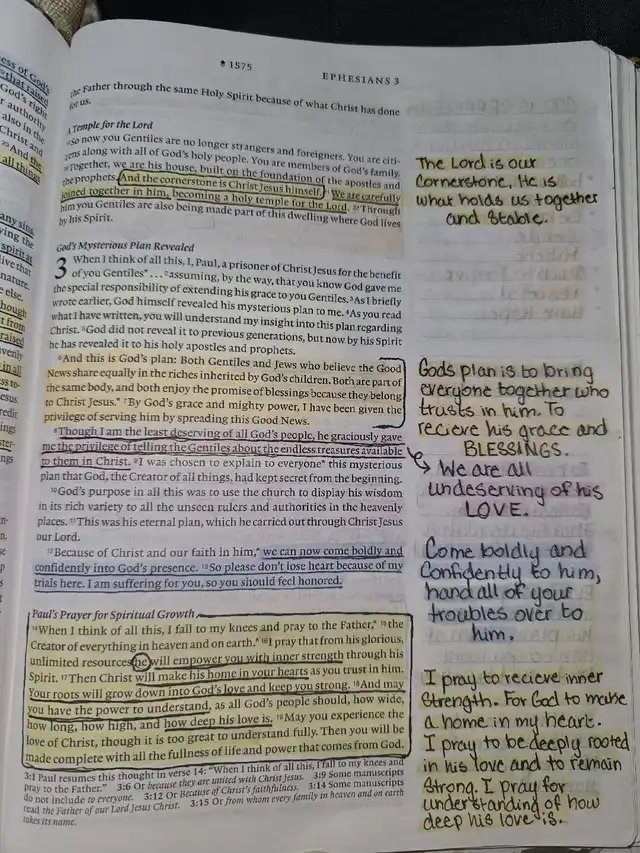 1575
EPHESIANS 3
the Father through the same Holy Spirit because of what Christ has done
for us.
A Temple for the Lord
So now you Gentiles are no longer strangers and foreigners. You are citi-
zens along with all of God's holy people. You are members of God's family.
Together, we are his house, built on the foundation of the apostles and
the prophets. And the cornerstone is Christ Jesus himself. We are carefully
joined together in him, becoming a holy temple for the Lord. 22 Through
him you Gentiles are also being made part of this dwelling where God lives
by his Spirit.
God's Mysterious Plan Revealed
3 When I think of all this, I, Paul, a prisoner of Christ Jesus for the benefit
of you Gentiles* . . . 2 assuming, by the way, that you know God gave me
the special responsibility of extending his grace to you Gentiles. 3 As I briefly
wrote earlier, God himself revealed his mysterious plan to me. 4 As you read
what I have written, you will understand my insight into this plan regarding
Christ. 5 God did not reveal it to previous generations, but now by his Spirit
he has revealed it to his holy apostles and prophets.
6 And this is God's plan: Both Gentiles and Jews who believe the Good
News share equally in the riches inherited by God's children. Both are part of
the same body, and both enjoy the promise of blessings because they belong
to Christ Jesus.* 7 By God's grace and mighty power, I have been given the
privilege of serving him by spreading this Good News.
8 Though I am the least deserving of all God's people, he graciously gave
me the privilege of telling the Gentiles about the endless treasures available
to them in Christ. 9 I was chosen to explain to everyone* this mysterious
plan that God, the Creator of all things, had kept secret from the beginning.
10 God's purpose in all this was to use the church to display his wisdom
in its rich variety to all the unseen rulers and authorities in the heavenly
places. 11 This was his eternal plan, which he carried out through Christ Jesus
our Lord.
12 Because of Christ and our faith in him,* we can now come boldly and
confidently into God's presence. 13 So please don't lose heart because of my
trials here. I am suffering for you, so you should feel honored.
Paul's Prayer for Spiritual Growth
14 When I think of all this, I fall to my knees and pray to the Father,* 15 the
Creator of everything in heaven and on earth.* 16 I pray that from his glorious,
unlimited resources he will empower you with inner strength through his
Spirit. 17 Then Christ will make his home in your hearts as you trust in him.
Your roots will grow down into God's love and keep you strong. 18 And may
you have the power to understand, as all God's people should, how wide,
how long, how high, and how deep his love is. 19 May you experience the
love of Christ, though it is too great to understand fully. Then you will be
made complete with all the fullness of life and power that comes from God.
3:1 Paul resumes this thought in verse 14: "When I think of all this, I fall to my knees and
pray to the Father." 3:6 Or because they are united with Christ Jesus. 3:9 Some manuscripts
do not include to everyone. 3:12 Or Because of Christ's faithfulness. 3:14 Some manuscripts
read the Father of our Lord Jesus Christ. 3:15 Or from whom every family in heaven and on earth
takes its name.
The Lord is our
Cornerstone, He is
what holds us together
and Stable.
Gods plan is to bring
everyone together who
trusts in him. To
recieve his grace and
BLESSINGS.
We are all
undeserving of his
LOVE.
Come boldly and
Confidently to him,
hand all of your
troubles over to
him.
I pray to recieve inner
Strength. For God to make
a home in my heart.
I pray to be deeply rooted
in his love and to remain
Strong. I pray for
understanding of how
deep his love is.